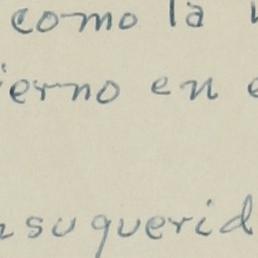 como la
ierno en e
su querid